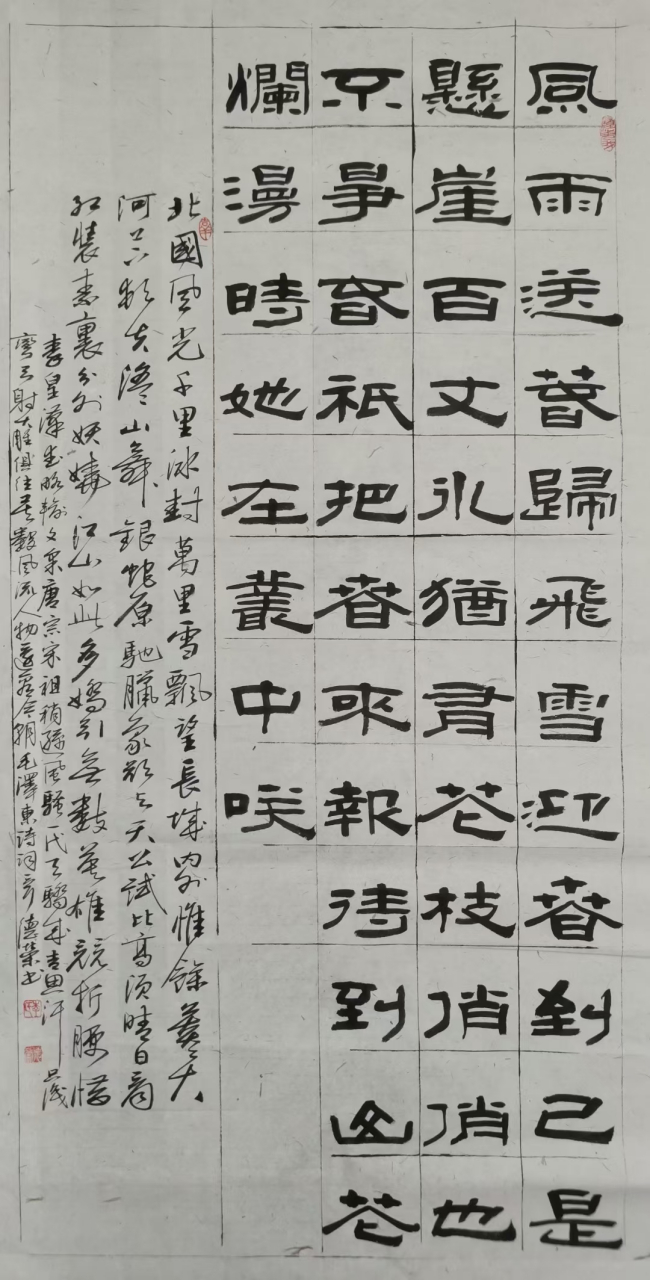 風雨送春歸飛雪迎春到已是
懸崖百丈冰猶有花枝俏俏也
不爭春祇把春來報待到山花
爛漫時她在叢中咲
北國風光千里冰封萬里雪飄望長城內外惟餘莽〻大
河上下頓失滔〻山舞銀蛇原馳臘象欲与天公試比高須晴日看
紅裝素裹分外妖嬈江山如此多嬌引無數英雄競折腰惜
秦皇漢武略輸文采唐宗宋祖稍遜風騷一代天驕成吉思汗只識
彎弓射大雕俱往矣數風流人物還看今朝毛澤東詩詞 德榮書